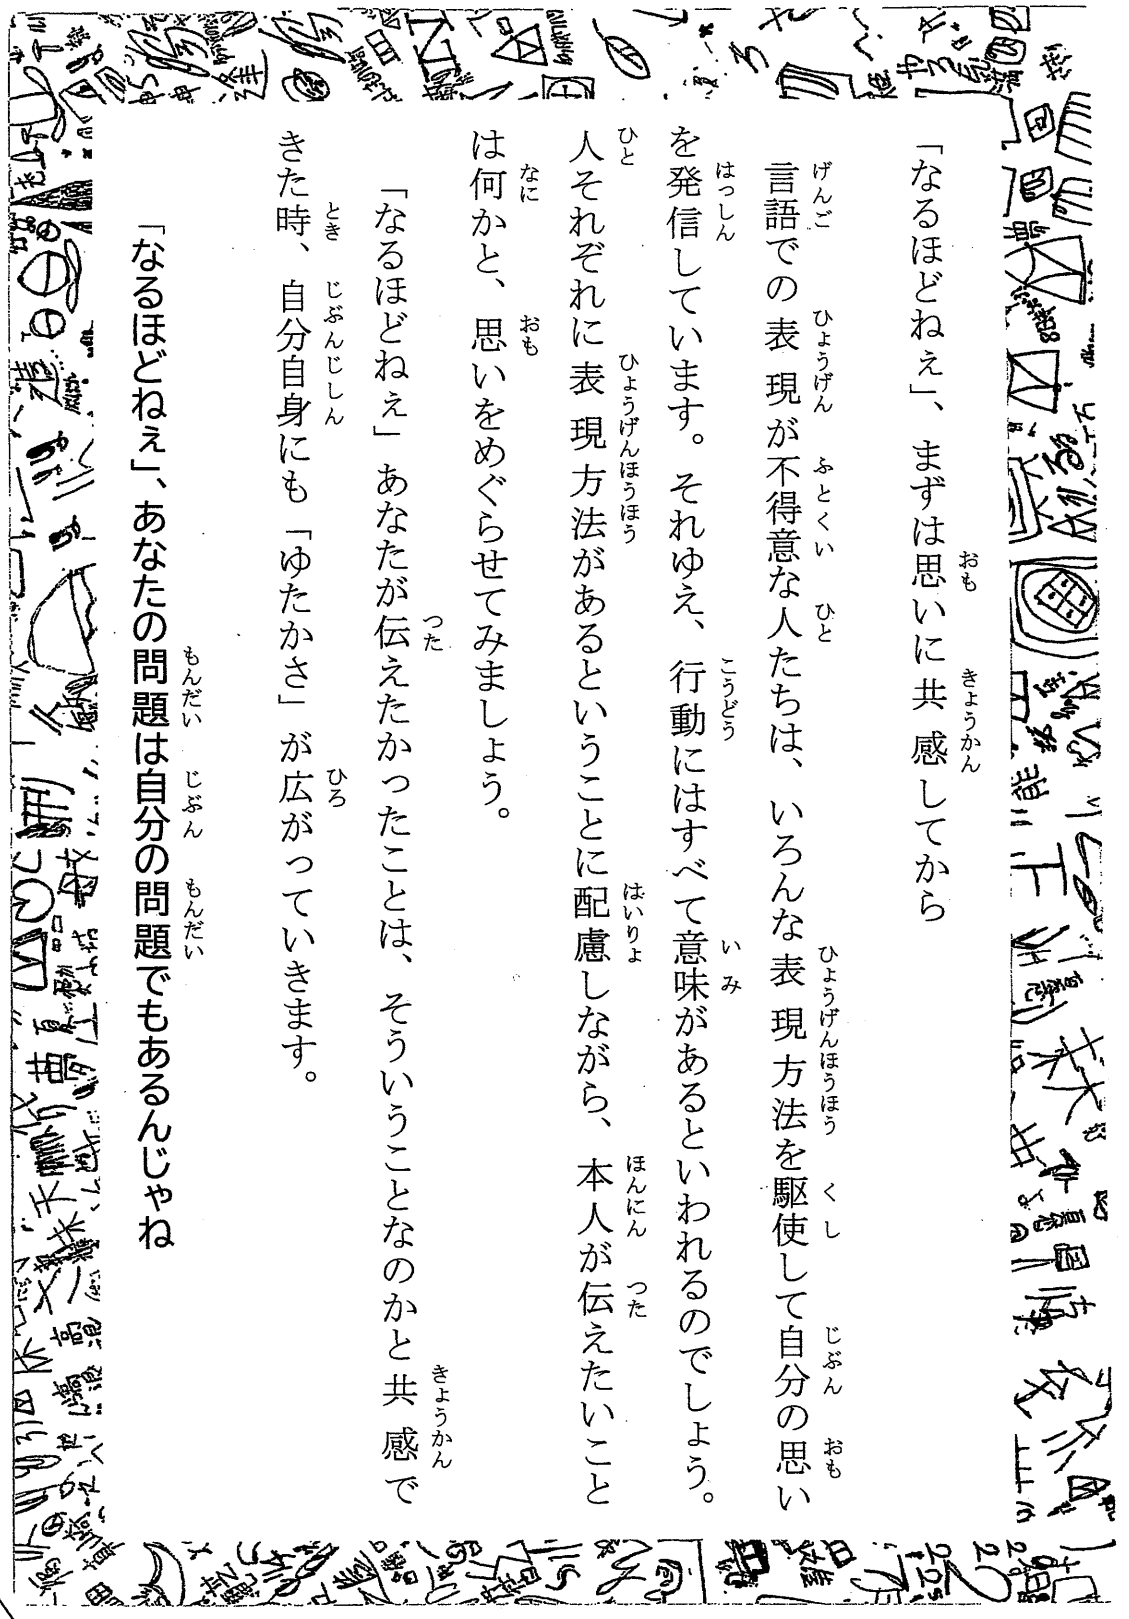 「なるほどねぇ」、まずは思いに共感してから
言語での表現が不得意な人たちは、いろんな表現方法を駆使して自分の思い
を発信しています。それゆえ、行動にはすべて意味があるといわれるのでしょう。
人それぞれに表現方法があるということに配慮しながら、本人が伝えたいこと
は何かと、思いをめぐらせてみましょう。
「なるほどねぇ」あなたが伝えたかったことは、そういうことなのかと共感で
きた時、自分自身にも「ゆたかさ」が広がっていきます。
「なるほどねぇ」、あなたの問題は自分の問題でもあるんじゃね